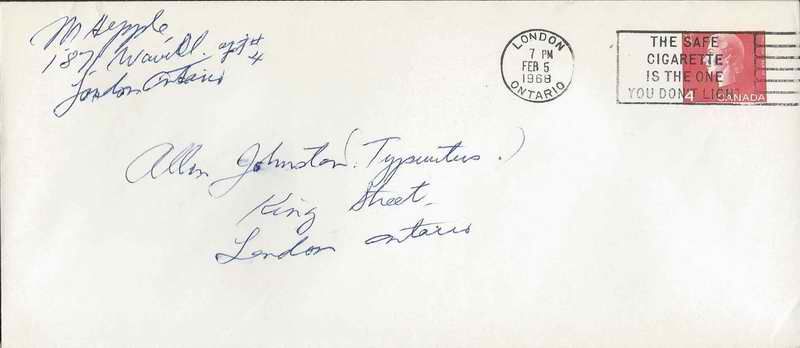 M Hepple
187 Wavell. apt #
4
London Ontario
LONDON
7 PM
FEB 5
1968
ONTARIO
THE SAFE
CIGARETTE
IS THE ONE
YOU DON'T LIGHT
4 CANADA
Allan Johnston (Typewriters.)
King Street
London Ontario